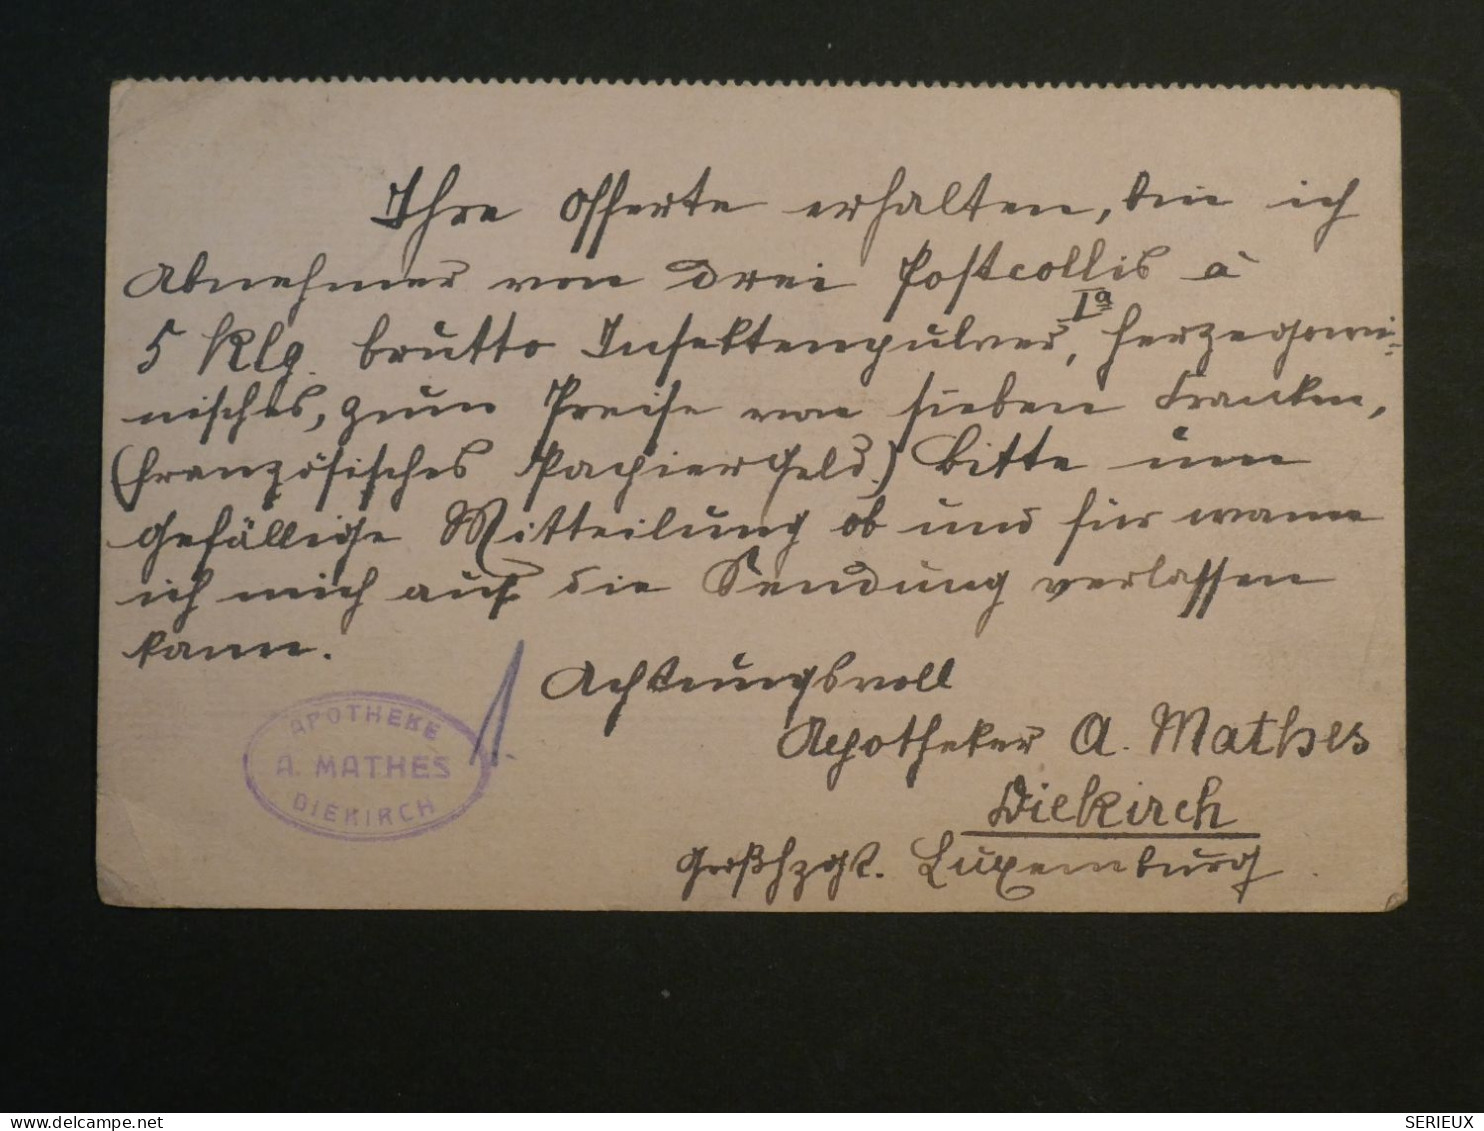 Ihre Offerte erhalten, bin ich
Abnehmer von drei Postcollis à
5 Klg. brutto Insektenpulver Iª, herzegowi=
nisches, zum Preise von sieben Franken,
(französisches Papiergeld.) Bitte um
gefällige Mitteilung ob und für wann
ich mich auf die Sendung verlassen
kann.
Achtungsvoll
Apotheker A. Mathes
Diekirch
Großhzgt. Luxemburg.
APOTHEKE
A. MATHES
DIEKIRCH
SERIEUX